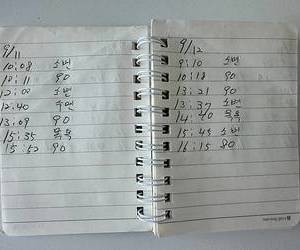 9/11
10:08 소변
10:11 90
12:00 소변
12:40 수면
13:09 90
15:35 목욕
15:52 90
9/12
9:10 소변
10:18 90
13:21 90
13:37 소변
14:40 목욕
15:45 소변
16:15 80